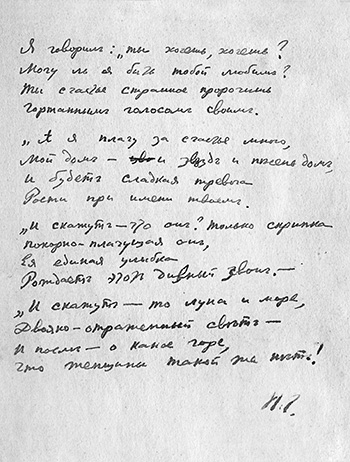 Я говорилъ: „ты хочешь, хочешь?
Могу ль я быть тобой любимъ?
Ты счастье странное пророчишь
Гортаннымъ голосомъ своимъ.
„А я плачу за счастье много,
Мой домъ — и звѣздъ и пѣсенъ домъ,
И будетъ сладкая тревога
Расти при имени твоемъ.
„И скажутъ — что онъ? только скрипка
Покорно-плачущая онъ,
Ея единая улыбка
Рождаетъ этотъ дивный звонъ. —
„И скажутъ — то луна и море,
Двояко-отраженный свѣтъ —
И послѣ — о какое горе,
Что женщины такой же нѣтъ!
Н.Г.